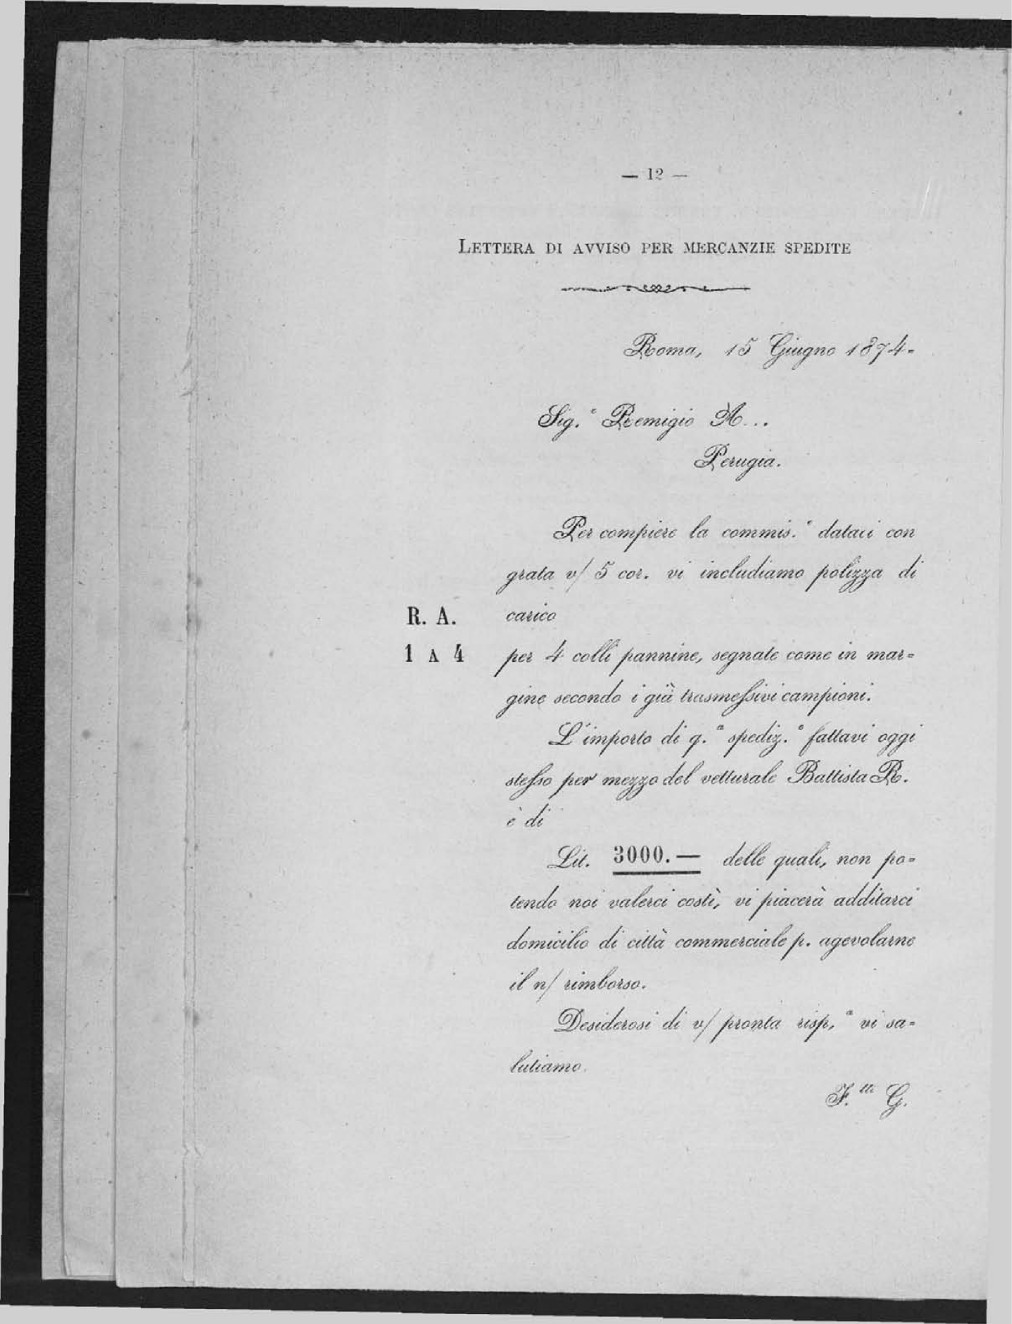 — 12 —
LETTERA DI AVVISO PER MERCANZIE SPEDITE
Roma, 15 Giugno 1874-
Sig.ᵉ Remigio A...
Perugia.
Per compiere la commis.ᵉ dataci con
grata v/ 5 cor. vi includiamo polizza di
R. A. carico
1 A 4 per 4 colli pannine, segnate come in mar=
gine secondo i già trasmessivi campioni.
L'importo di q.ᵃ spediz.ᵉ fattavi oggi
stesso per mezzo del vetturale Battista R.
è di
Lit. 3000.— delle quali, non po=
tendo noi valerci costì, vi piacerà additarci
domicilio di città commerciale p. agevolarne
il n/ rimborso.
Desiderosi di v/ pronta risp.ᵃ vi sa=
lutiamo.
F.ˡˡⁱ G.